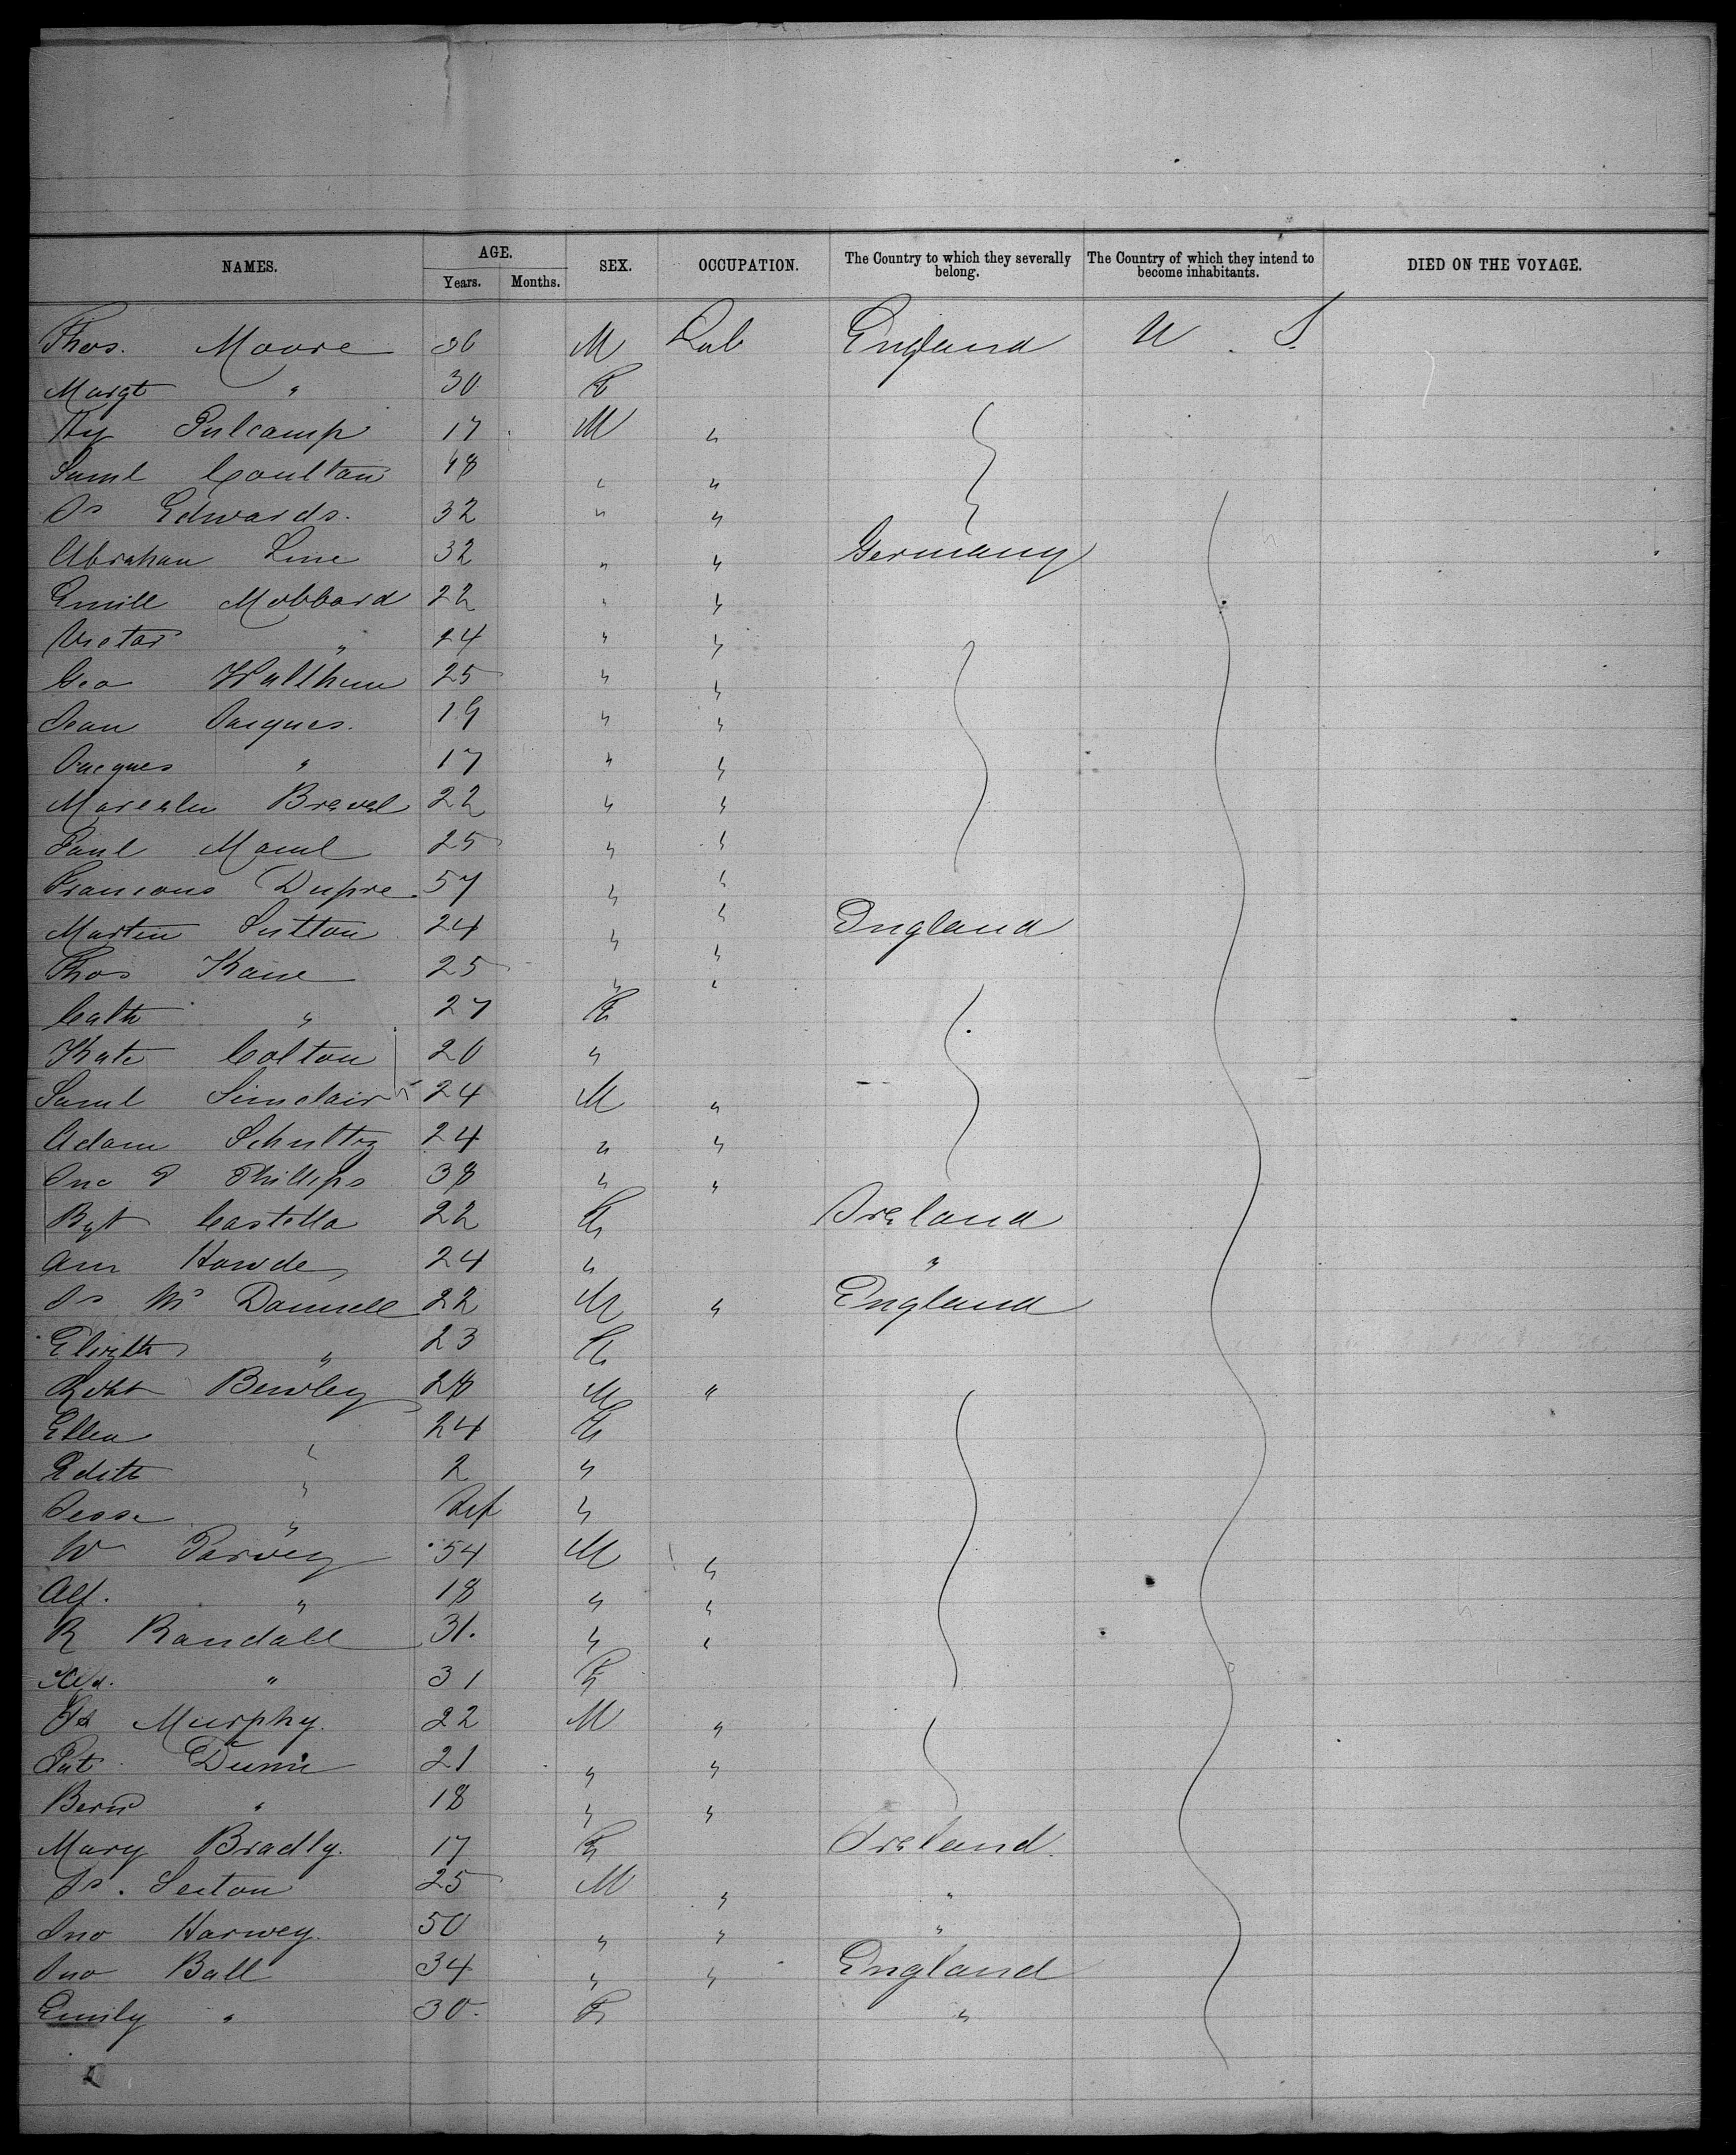 NAMES. AGE. Years. Months. SEX. OCCUPATION. The Country to which they severally belong. The Country of which they intend to become inhabitants. DIED ON THE VOYAGE.
Thos. Moore 36 M Lab England U. S.
Margt " 30 F
Hy Pulcamp 17 M "
Saml Coultan 48 " "
Js Edwards. 32 " "
Abraham Line 32 " " Germany
Emill Mobbard 22 " "
Victor " 24 " "
Geo Walthum 25 " "
Jean Jacques. 19 " "
Jacques " 17 " "
Breval 22 " "
Paul 25 " "
Francous Dupre 57 " "
Martin Sutton 24 " " England
Thos Kane 25 " "
Cath " 27 F
Kate Colton 20 "
Saml Sinclair 24 M "
Adam Schultz 24 " "
Jno P Phillips 38 " "
Bgt Castella 22 F Ireland
Ann Howde 24 " "
Js Mc Donnell 22 M " England
Elizth " 23 F
Robt Bewley 28 M "
Ellen " 24 F
Edith " 2 "
Jesse " Inf "
Wm Parvey 54 M "
Alf. " 18 " "
R Randall 31. " "
" 31 F
Js Murphy. 22 M "
Pat Dunn 21 " "
Bernd " 18 " "
Mary Bradly. 17 F Ireland.
Js. Sexton 25 M " "
Jno Harvey. 50 " " "
Jno Ball 34 " " England
Emily " 30. F "